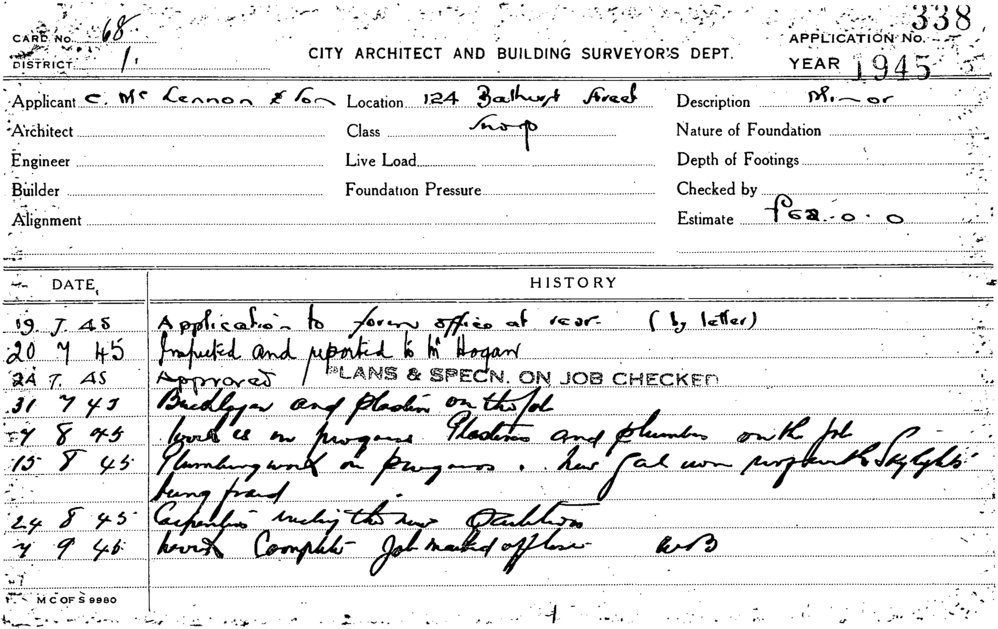 338
CARD No. 68
CITY ARCHITECT AND BUILDING SURVEYOR'S DEPT.
APPLICATION No.
DISTRICT 1.
YEAR 1945
Applicant C. Mc Lennon & Son Location 124 Bathurst Street Description Minor
Architect Class Shop Nature of Foundation
Engineer Live Load Depth of Footings
Builder Foundation Pressure Checked by
Alignment Estimate £62.0.0
DATE HISTORY
19 7 45 Application to form office at rear. (by letter)
20 7 45 Inspected and reported to Mr Hogan
24 7. 45 Approved / PLANS & SPECN. ON JOB CHECKED
31 7 45 Bricklayer and plasterer on the job
7 8 45 Work is in progress Plasterers and plumbers on the job
15 8 45 Plumbing work in progress. New Gal iron roof with Skylights
being fixed
24 8 45 Carpenters the new partitions
7 9 45 Work Complete Job marked off here
M C OF S 9980